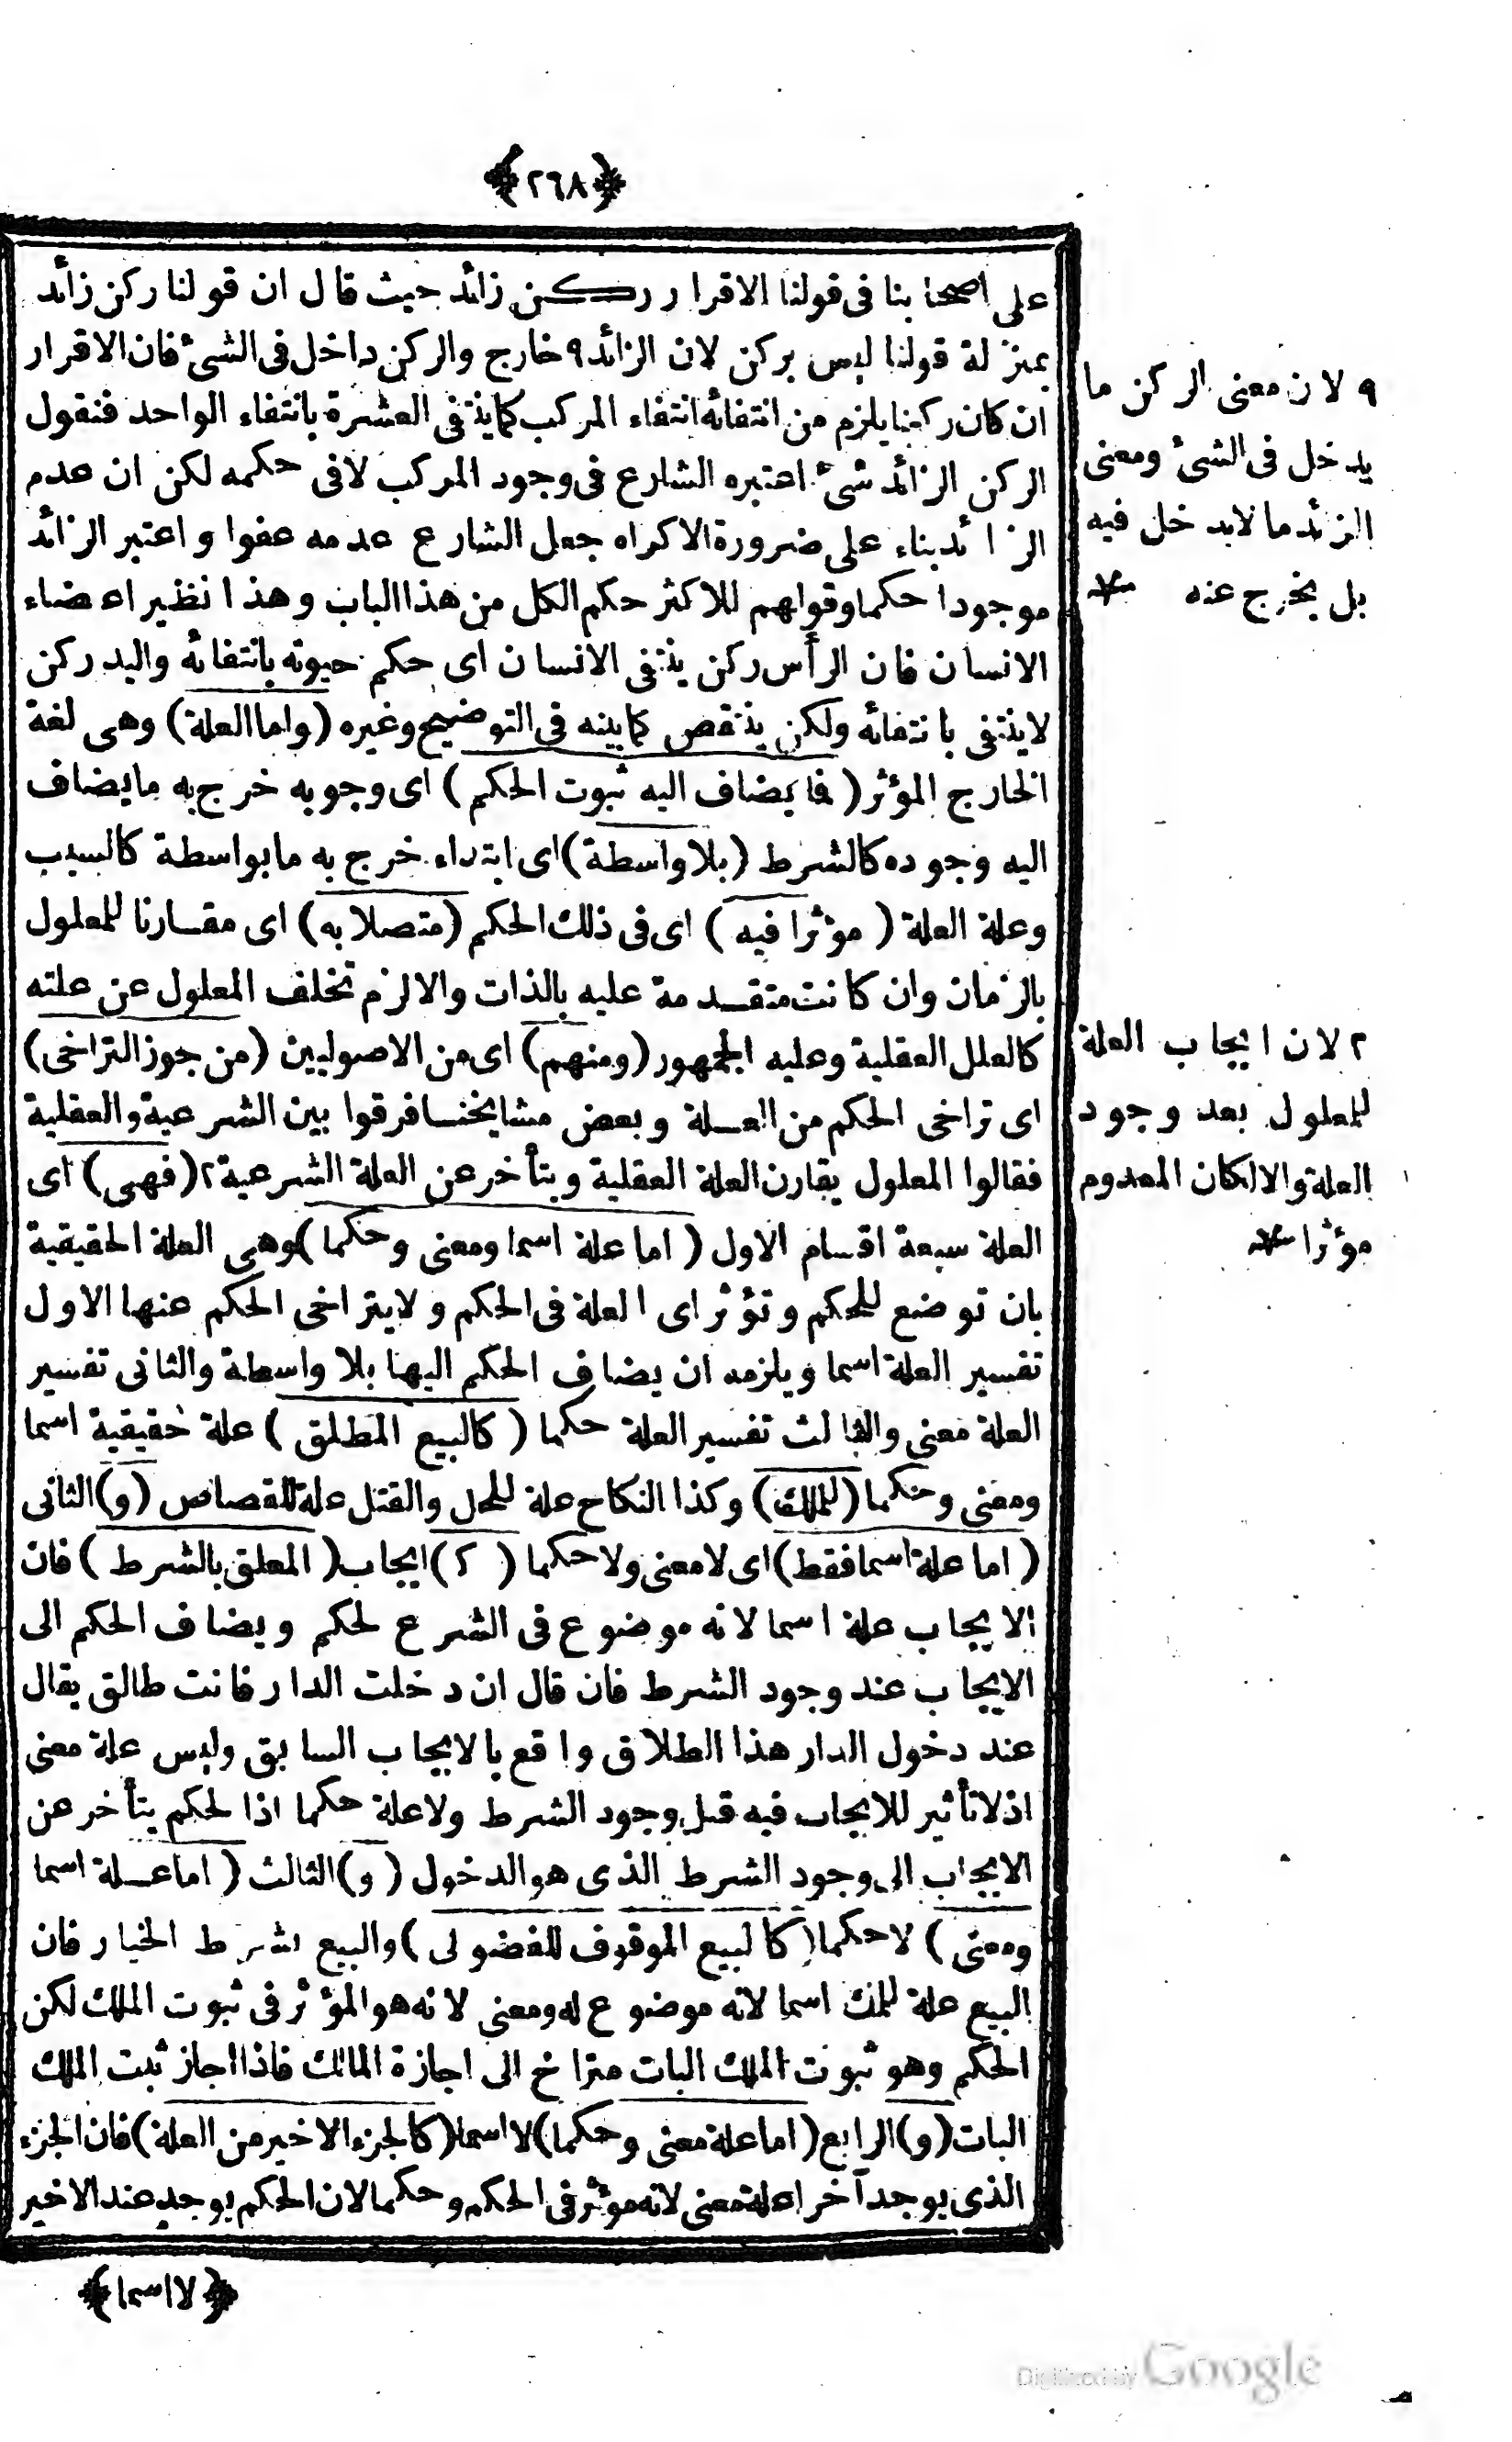 ﴿٢٦٨﴾
على اصحابنا فى قولنا الاقرار ركن زائد حيث قال ان قولنا ركن زائد
بمنزلة قولنا ليس بركن لان الزائد ٩ خارج والركن داخل فى الشئ فان الاقرار
ان كان ركنا يلزم من انتفائه انتفاء المركب كما ينتفى العشرة بانتفاء الواحد فنقول
الركن الزائد شئ اعتبره الشارع فى وجود المركب لا فى حكمه لكن ان عدم
الزائد بناء على ضرورة الاكراه جعل الشارع عدمه عفوا واعتبر الزائد
موجودا حكما وقولهم للاكثر حكم الكل من هذا الباب وهذا نظير اعضاء
الانسان فان الرأس ركن ينتفى الانسان اى حكم حيوته بانتفائه واليد ركن
لا ينتفى بانتفائه ولكن ينتقص كما بينه فى التوضيح وغيره (واما العلة) وهى لغة
الخارج المؤثر (فما يضاف اليه ثبوت الحكم) اى وجوبه خرج به ما يضاف
اليه وجوده كالشرط (بلا واسطة) اى ابتداء خرج به ما بواسطة كالسبب
وعلة العلة (مؤثرا فيه) اى فى ذلك الحكم (متصلا به) اى مقارنا للمعلول
بالزمان وان كانت متقدمة عليه بالذات والا لزم تخلف المعلول عن علته
كالعلل العقلية وعليه الجمهور (ومنهم) اى من الاصوليين (من جوز التراخى)
اى تراخى الحكم من العلة وبعض مشايخنا فرقوا بين الشرعية والعقلية
فقالوا المعلول يقارن العلة العقلية ويتأخر عن العلة الشرعية ٢ (فهى) اى
العلة سبعة اقسام الاول (اما علة اسما ومعنى وحكما) وهى العلة الحقيقية
بان توضع للحكم وتؤثر اى العلة فى الحكم ولا يتراخى الحكم عنها الاول
تفسير العلة اسما ويلزمه ان يضاف الحكم اليها بلا واسطة والثانى تفسير
العلة معنى والثالث تفسير العلة حكما (كالبيع المطلق) علة حقيقية اسما
ومعنى وحكما (للملك) وكذا النكاح علة للحل والقتل علة للقصاص (و) الثانى
(اما علة اسما فقط) اى لا معنى ولا حكما (ك) ايجاب (المعلق بالشرط) فان
الايجاب علة اسما لانه موضوع فى الشرع لحكم ويضاف الحكم الى
الايجاب عند وجود الشرط فان قال ان دخلت الدار فانت طالق يقال
عند دخول الدار هذا الطلاق واقع بالايجاب السابق وليس علة معنى
اذ لا تأثير للايجاب فيه قبل وجود الشرط ولا علة حكما اذا لحكم يتأخر عن
الايجاب الى وجود الشرط الذى هو الدخول (و) الثالث (اما علة اسما
ومعنى) لا حكما (كالبيع الموقوف للفضولى) والبيع بشرط الخيار فان
البيع علة للملك اسما لانه موضوع له ومعنى لانه هو المؤثر فى ثبوت الملك لكن
الحكم وهو ثبوت الملك البات متراخ الى اجازة المالك فاذا اجاز ثبت الملك
البات (و) الرابع (اما علة معنى وحكما) لا اسما (كالجزء الاخير من العلة) فان الجزء
الذى يوجد آخرا علة معنى لانه مؤثر فى الحكم وحكما لان الحكم يوجد عند الاخير
﴿لا اسما﴾
٩ لان معنى الركن ما
يدخل فى الشئ ومعنى
الزئد ما لايدخل فيه
بل يخرج عنه
٢ لان ايجاب العلة
للمعلول بعد وجود
العلة والا لكان المعدوم
مؤثرا
Digitized by Google